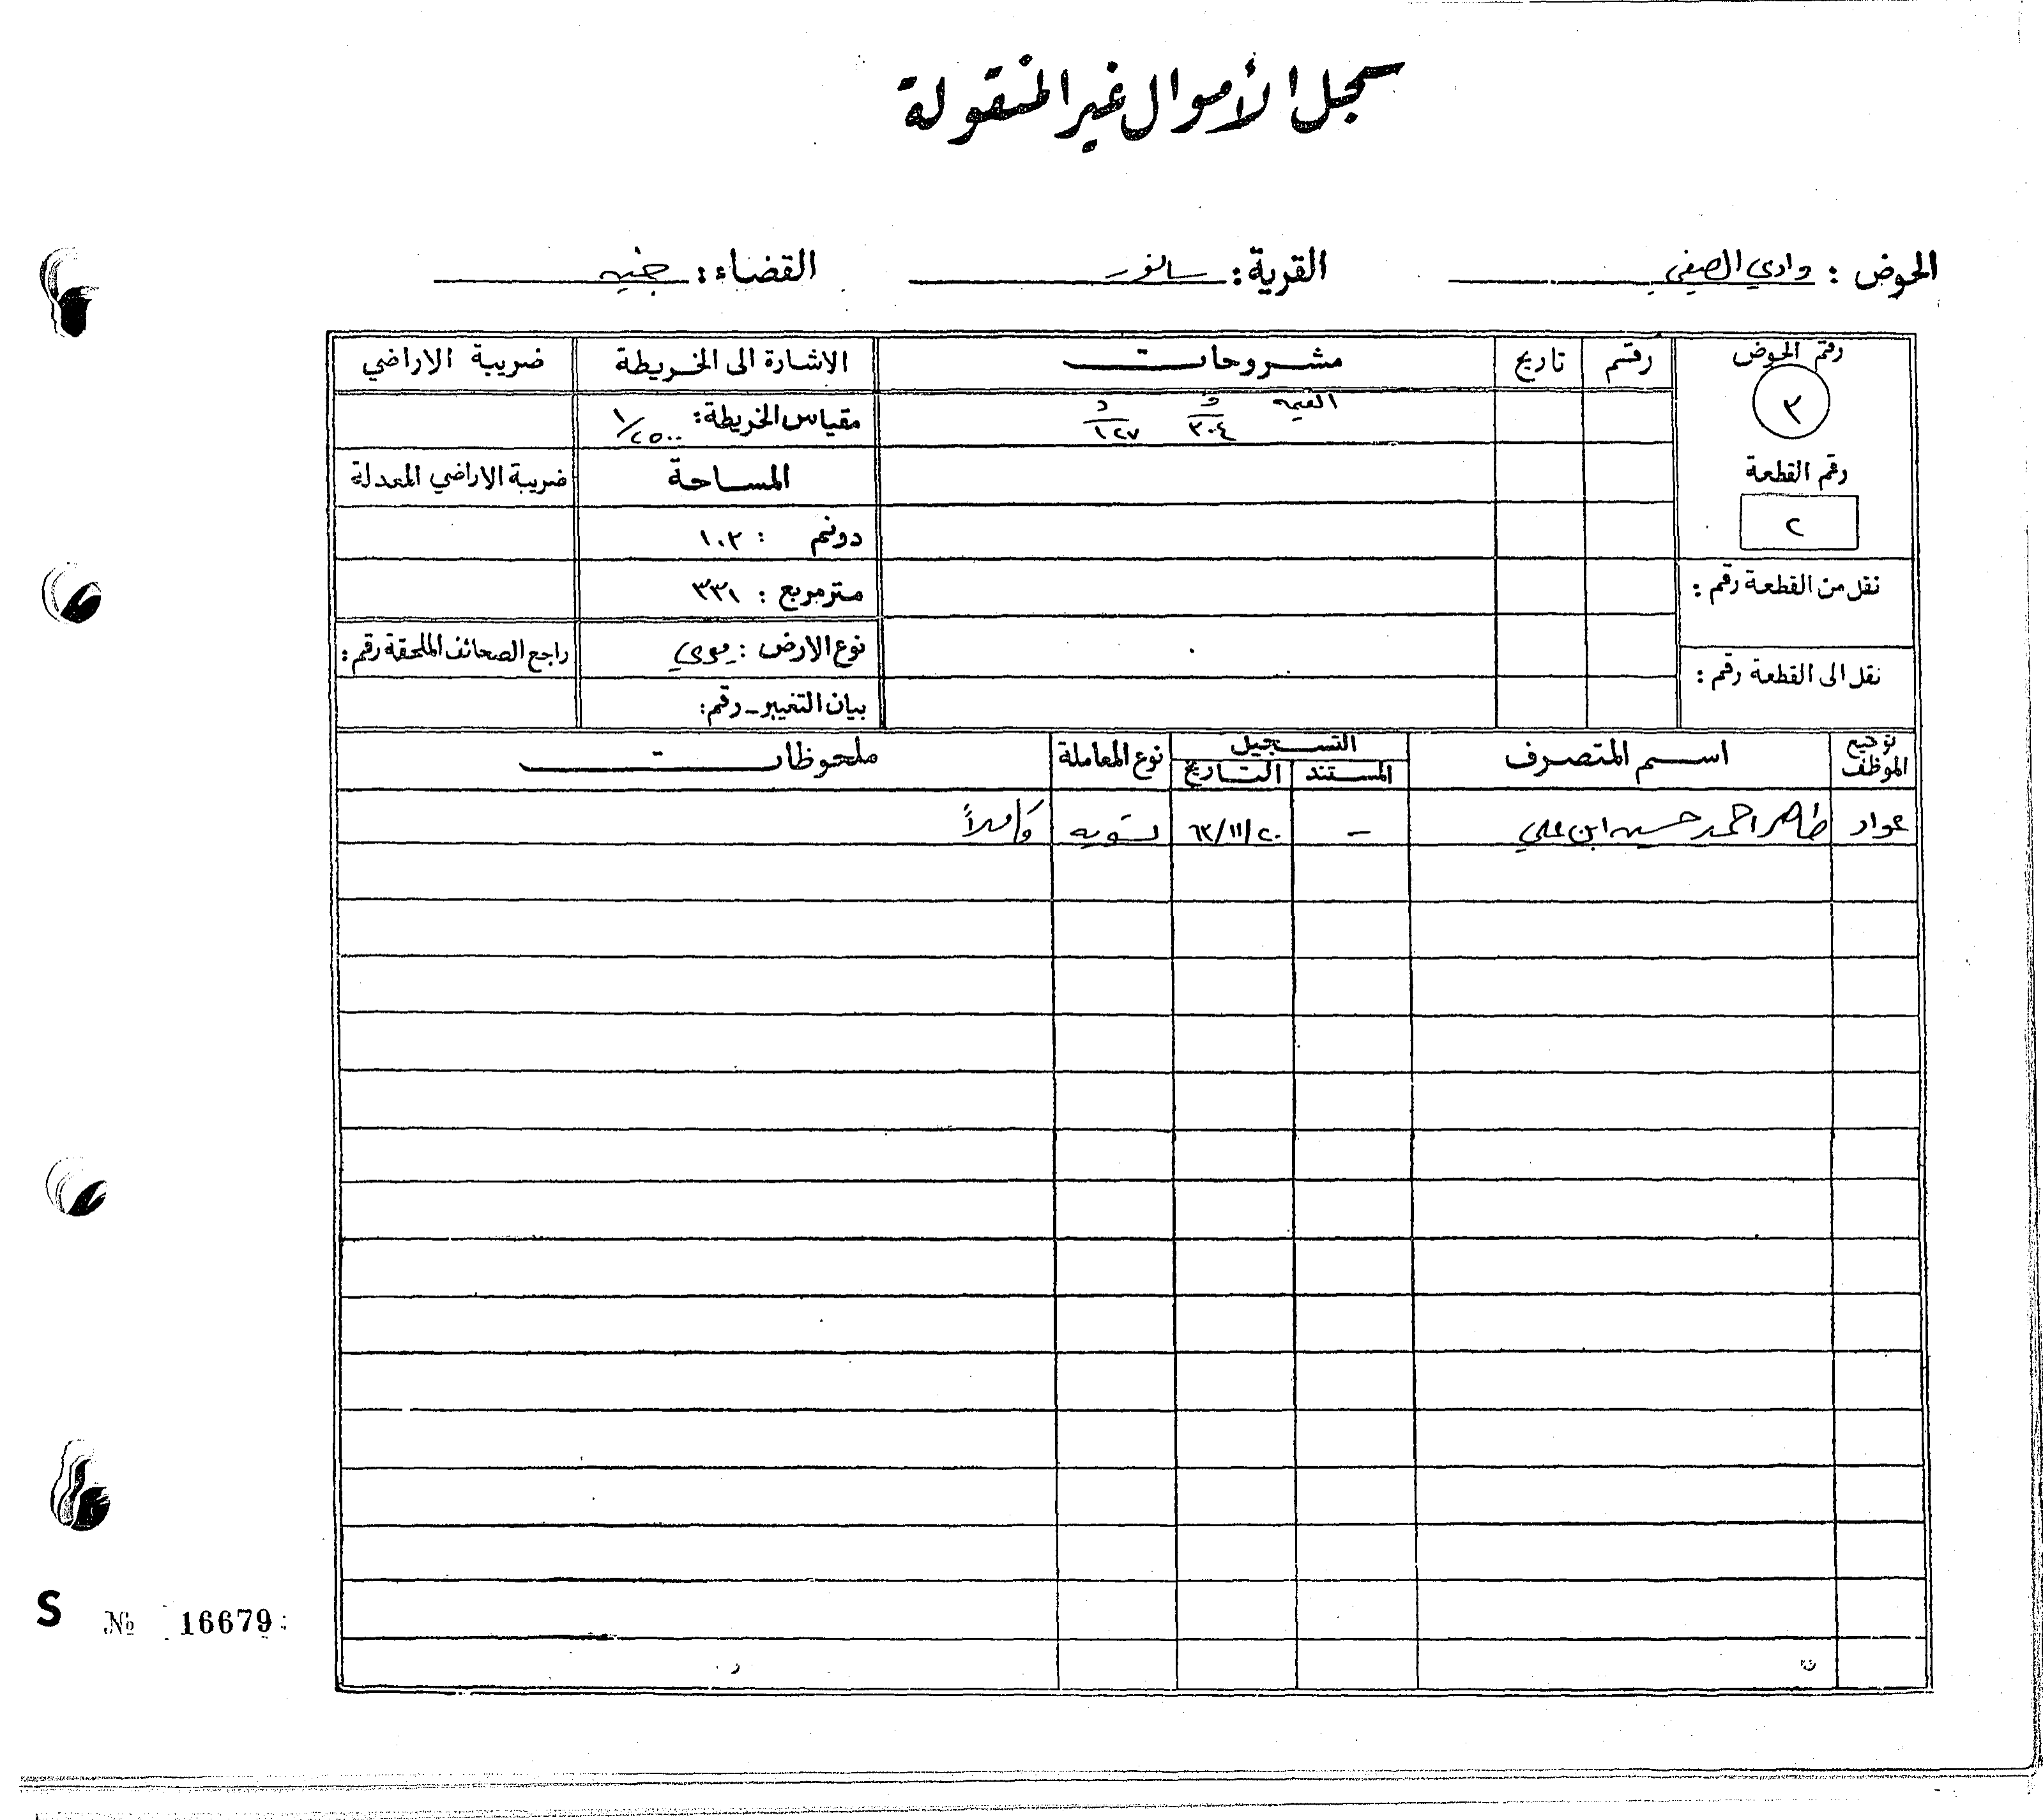 سجل الأموال غير المنقولة
الحوض : وادي الصيفي القرية : سانور القضاء : جنين
رقم الحوض رقم تاريخ مشروحات الاشارة الى الخريطة ضريبة الاراضي
٣
القيمه ف ٣٠٤ د ١٢٧ مقياس الخريطة : ١/٢٥٠٠
رقم القطعة المساحة ضريبة الاراضي المعدلة
٢ دونم : ١٠٣
نقل من القطعة رقم : متر مربع : ٣٣١
نوع الارض : ميري راجع الصحائف الملحقة رقم :
نقل الى القطعة رقم : بيان التغيير - رقم :
توقيع الموظف اسم المتصرف التسجيل نوع المعاملة ملحوظات
المستند التاريخ
عواد طاهر احمد حسين ابن علي – ٦٣/١١/٢٠ تسويه كاملاً
S № 16679